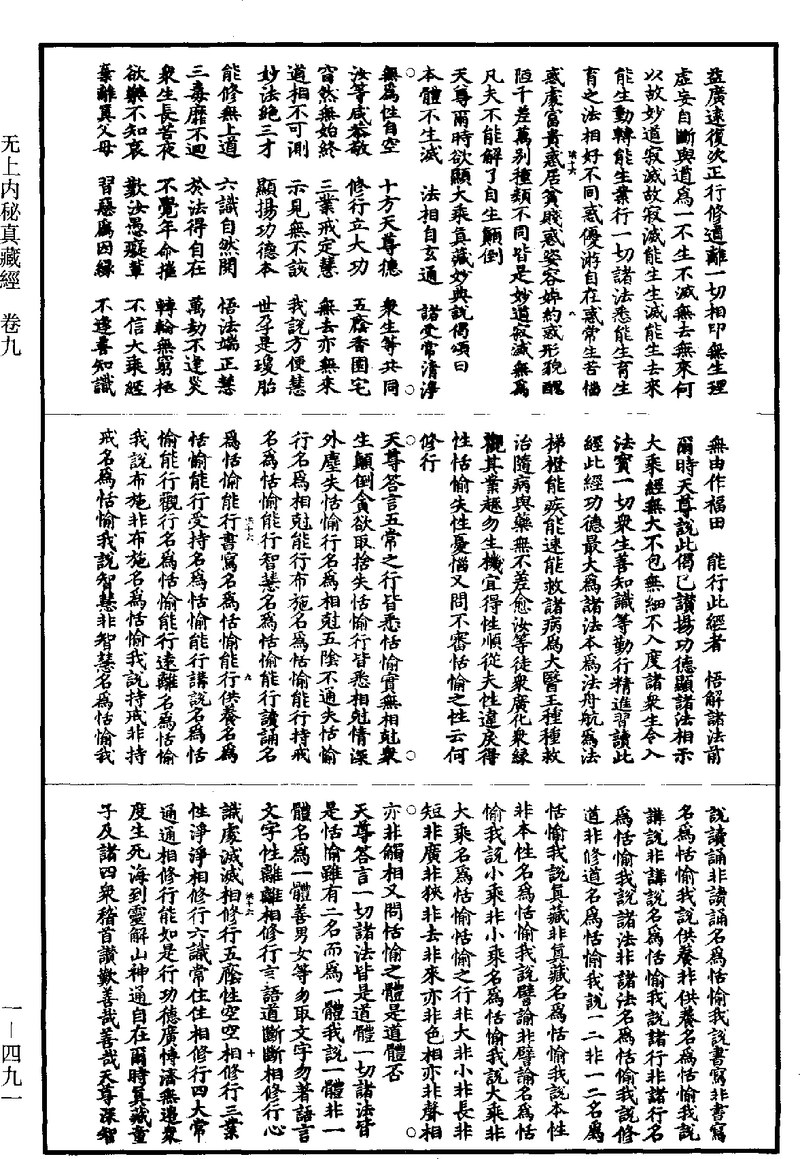 益廣遠復次正行修道離一切相印無生理
虛妄自斷與道為一不生不滅無去無來何
以故妙道寂滅故寂滅能生生滅能生去來
能生動轉能生業行一切諸法悉能生育生
育之法相好不同惑優游自在惑常生苦惱
惑處富貴惑居貧賤惑姿容婥約惑形貌醜
陋千差萬別種類不同皆是妙道寂滅無為
凡夫不能解了自生顛倒
天尊爾時欲顯大乘真藏妙典說偈頌曰
本體不生滅 法相自玄通 諸受常清淨
無為性自空 十方天尊德 眾生等共同
汝等咸恭敬 修行立大功 五廕香園宅
窅然無始終 三業戒定慧 無去亦無來
道相不可測 示見無不該 我說方便慧
妙法絕三才 顯揚功德本 世孕是瓊胎
能修無上道 六識自然開 悟法端正慧
三毒靡不迴 於法得自在 萬劫不逢災
眾生長苦夜 不覺年命摧 轉輪無窮極
欲樂不知哀 歎汝愚癡輩 不信大乘經
棄離真父母 習惡為因緣 不逢善知識
無由作福田 能行此經者 悟解諸法前
爾時天尊說此偈已讚揚功德顯諸法相示
大乘經無大不包無細不入度諸眾生令入
法實一切眾生善知識等勤行精進習讀此
經此經功德最大為諸法本為法舟航為法
梯橙能疾能速能救諸病為大醫王種種救
治隨病與藥無不差愈汝等徒眾廣化眾緣
觀其業趣勿生機宜得性順從夫性違戾得
性恬愉失性憂惱又問不審恬愉之性云何
修行
天尊答言五常之行皆悉恬愉實無相尅眾
生顛倒貪欲取捨失恬愉行皆悉相尅情深
外塵失恬愉行名為相尅五陰不通失恬愉
行名為相尅能行布施名為恬愉能行持戒
名為恬愉能行智慧名為恬愉能行讀誦名
為恬愉能行書寫名為恬愉能行供養名為
恬愉能行受持名為恬愉能行講說名為恬
愉能行觀行名為恬愉能行遠離名為恬愉
我說布施非布施名為恬愉我說持戒非持
戒名為恬愉我說智慧非智慧名為恬愉我
說讀誦非讀誦名為恬愉我說書寫非書寫
名為恬愉我說供養非供養名為恬愉我說
講說非講說名為恬愉我說諸行非諸行名
為恬愉我說諸法非諸法名為恬愉我說修
道非修道名為恬愉我說一二非一二名為
恬愉我說真藏非真藏名為恬愉我說本性
非本性名為恬愉我說譬諭非譬諭名為恬
愉我說小乘非小乘名為恬愉我說大乘非
大乘名為恬愉恬愉之行非大非小非長非
短非廣非狹非去非來亦非色相亦非聲相
亦非觸相又問恬愉之體是道體否
天尊答言一切諸法皆是道體一切諸法皆
是恬愉雖有二名而為一體我說一體非一
體名為一體善男女等勿取文字勿著語言
文字性離離相修行言語道斷斷相修行心
識處滅滅相修行五廕性空空相修行三業
性淨淨相修行六識常住住相修行四大常
通通相修行能如是行功德廣博濟無邊眾
度生死海到靈解山神通自在爾時真藏童
子及諸四眾稽首讚歎善哉善哉天尊深智
无上内秘真藏經 卷九
一—四九一